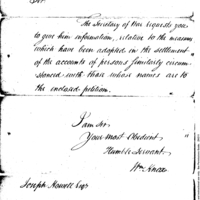 Sir.
The Secretary of War requests you
to give him information, relative to the measures
which have been adopted in the settlement
of the accounts of persons similarly circum-
stanced with those whose names are to
the enclosed petition.
I am Sir
Your most Obedient
Humble Servant
Wm Knox
Joseph Howell Esqr